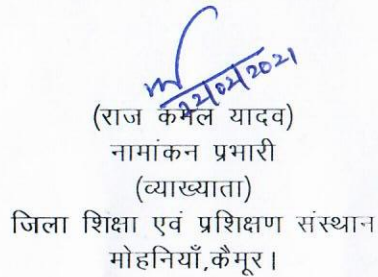 22/02/2021
(राज कमल यादव)
नामांकन प्रभारी
(व्याख्याता)
जिला शिक्षा एवं प्रशिक्षण संस्थान
मोहनियाँ,कैमूर।